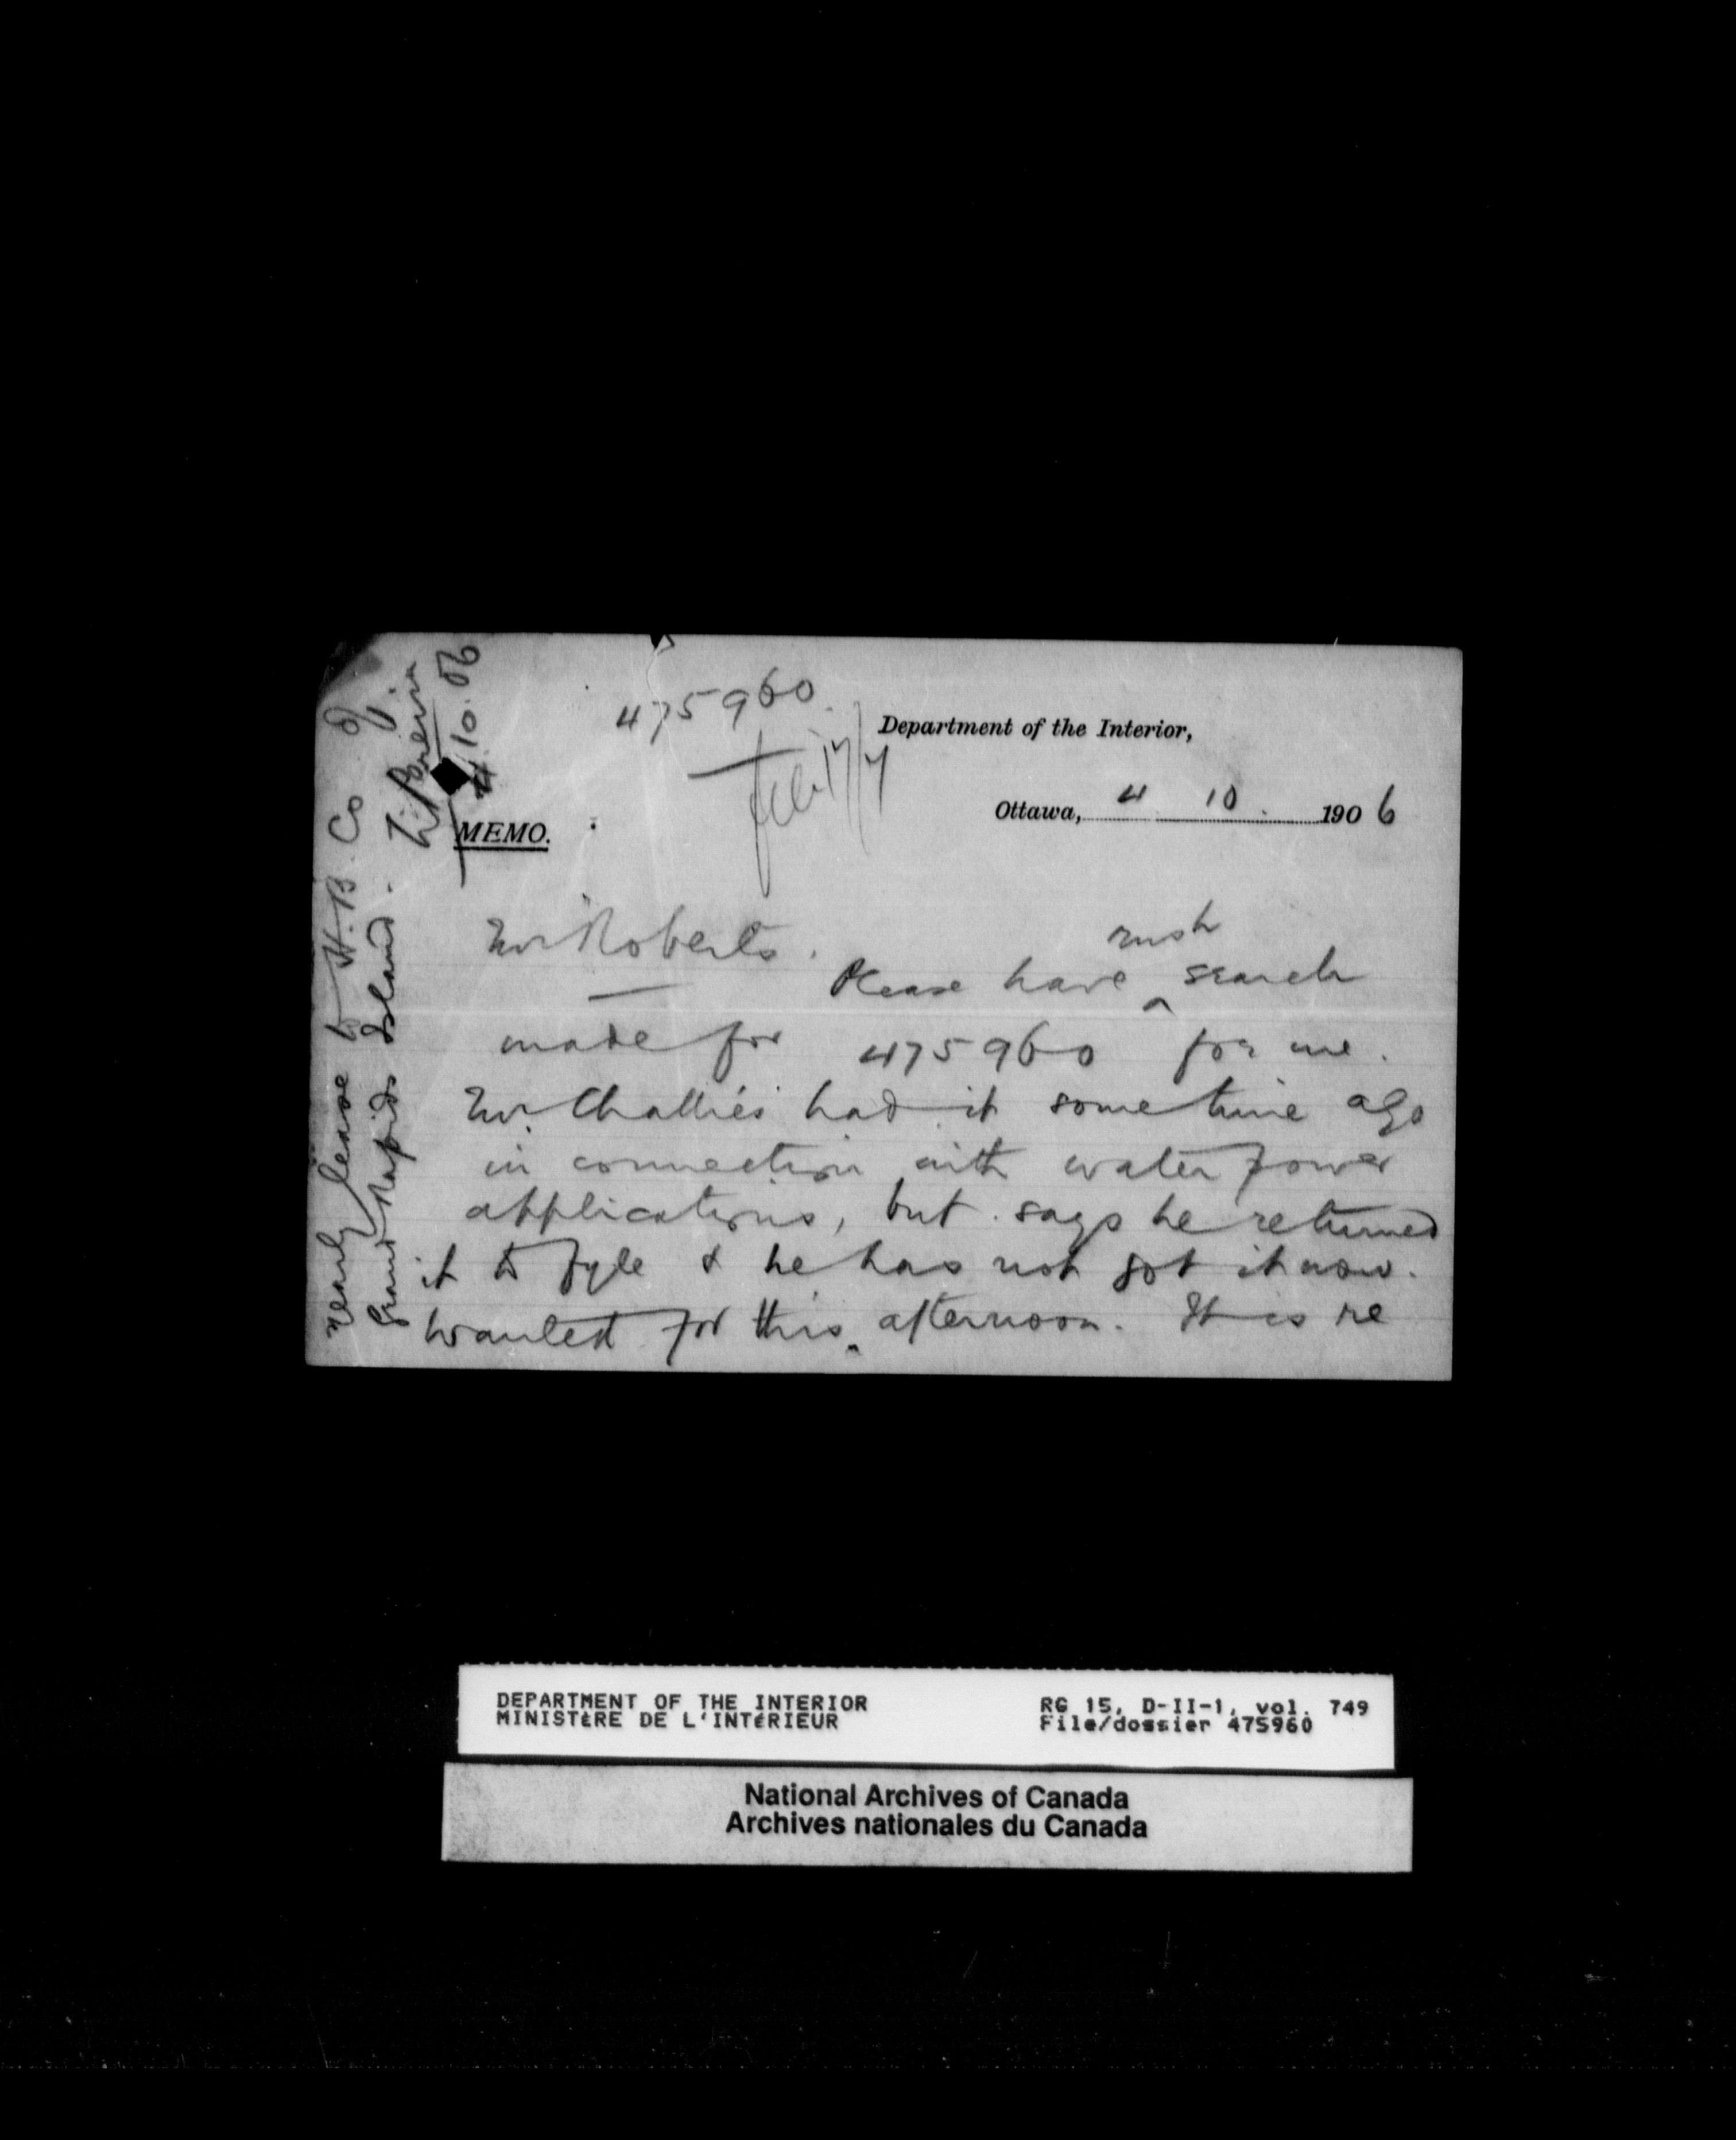 475960.
Department of the Interior,
Ottawa, 4 10. 1906
MEMO.
Mr Roberts.
rush
Please have ^ search
made for 475960 for me.
Mr Challies had it some time ago
in connection with water power
applications, but says he returned
it to fyle & he has not got it now.
Wanted for this afternoon. It is re
yearly lease to H.B. Co of
Grand Rapids Island.
4/10.06
DEPARTMENT OF THE INTERIOR
MINISTÈRE DE L'INTÉRIEUR
RG 15, D-II-1, vol. 749
File/dossier 475960
National Archives of Canada
Archives nationales du Canada